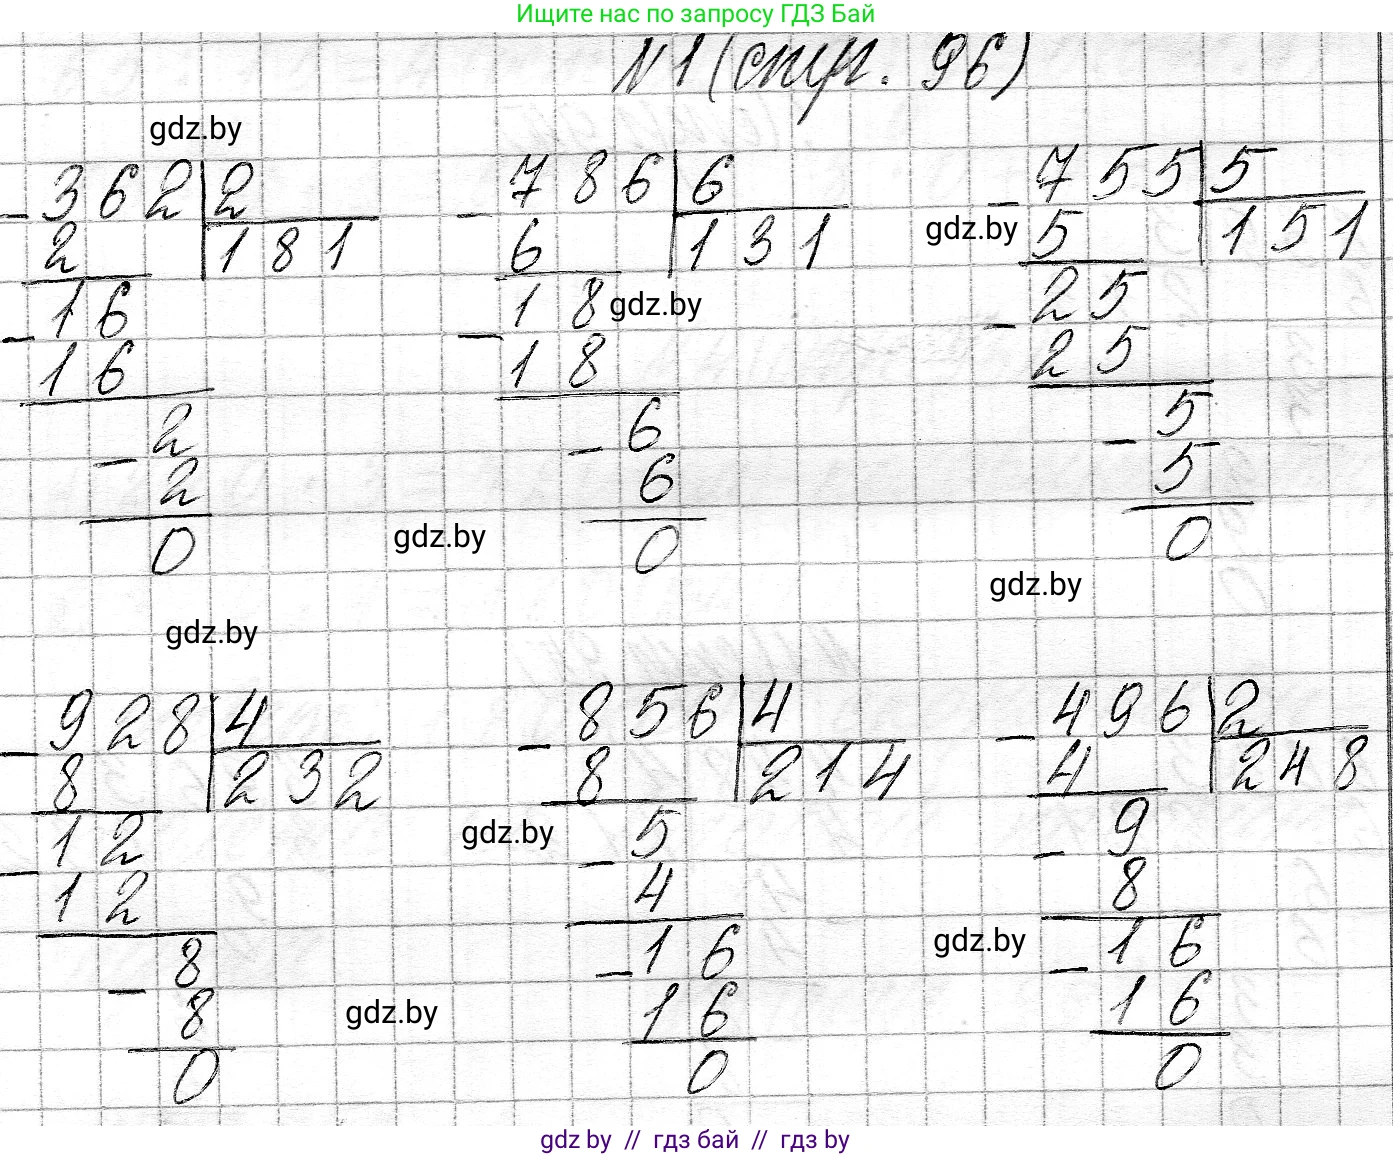 Ищите нас по запросу ГДЗ Бай
№1 (стр. 96)
gdz.by
362 2 786 6 755 5
2 181 6 131 gdz.by 5 151
16 18 gdz.by 25
16 18 25
2 6 5
2 6 5
0 gdz.by 0 0
gdz.by
gdz.by
928 4 856 4 496 2
8 232 8 214 4 248
12 gdz.by 5 9
12 4 8
8 16 gdz.by 16
8 gdz.by 16 16
0 0 0
gdz by // гдз бай // гдз by